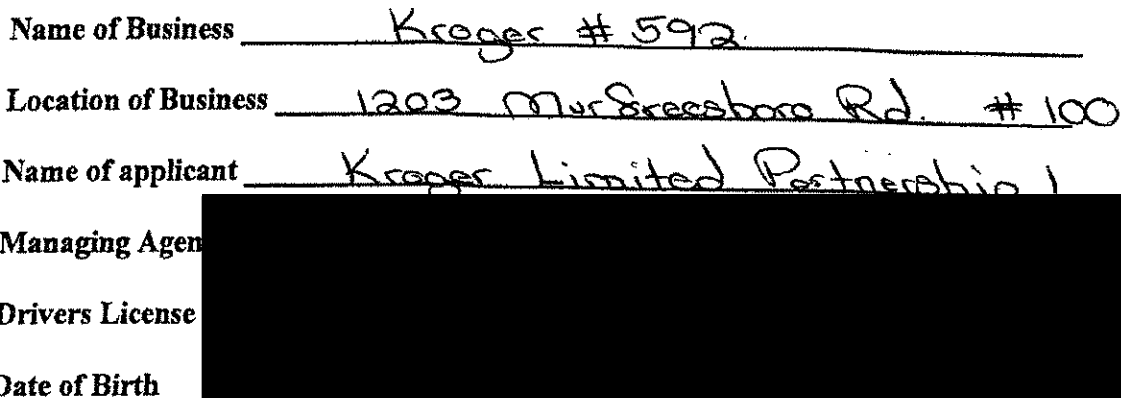 Name of Business Kroger # 592
Location of Business 1203 Murfreesboro Rd. # 100
Name of applicant Kroger Limited Partnership I
Managing Agen
Drivers License
Date of Birth